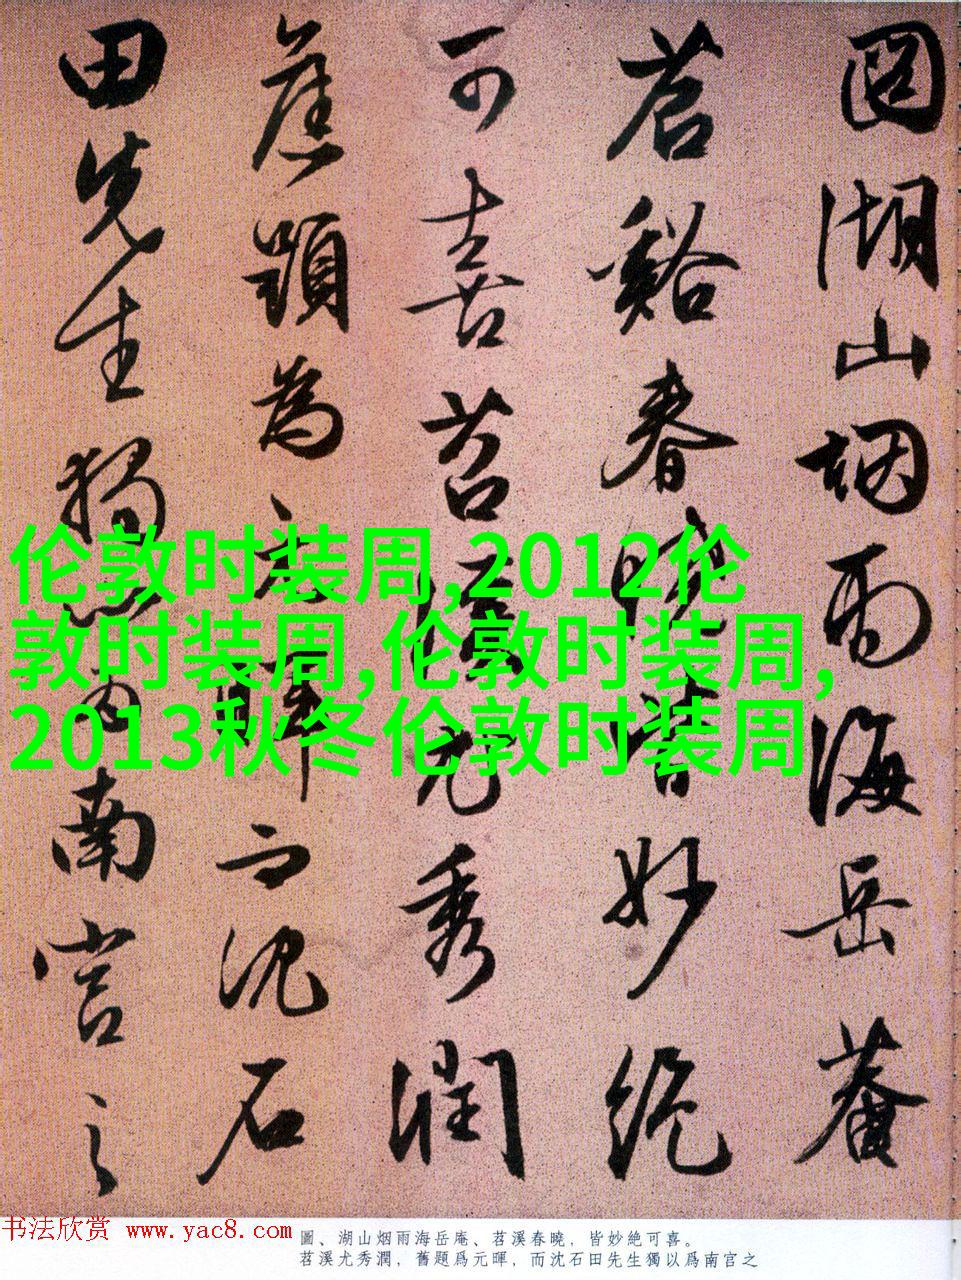 圖湖山烟雨海岳菴
苕谿春曉皆妙絕
可喜苕溪尤秀潤
舊題為元暉而沈石
田先生獨以為南宮之
伦敦时装周,2012伦
敦时装周,伦敦时装周,
2013秋冬伦敦时装周
书法欣赏 www.yac8.com
圖、湖山烟雨海岳庵、苕溪春曉，皆妙絶可喜。
苕溪尤秀潤，舊題爲元暉，而沈石田先生獨以爲南宫之